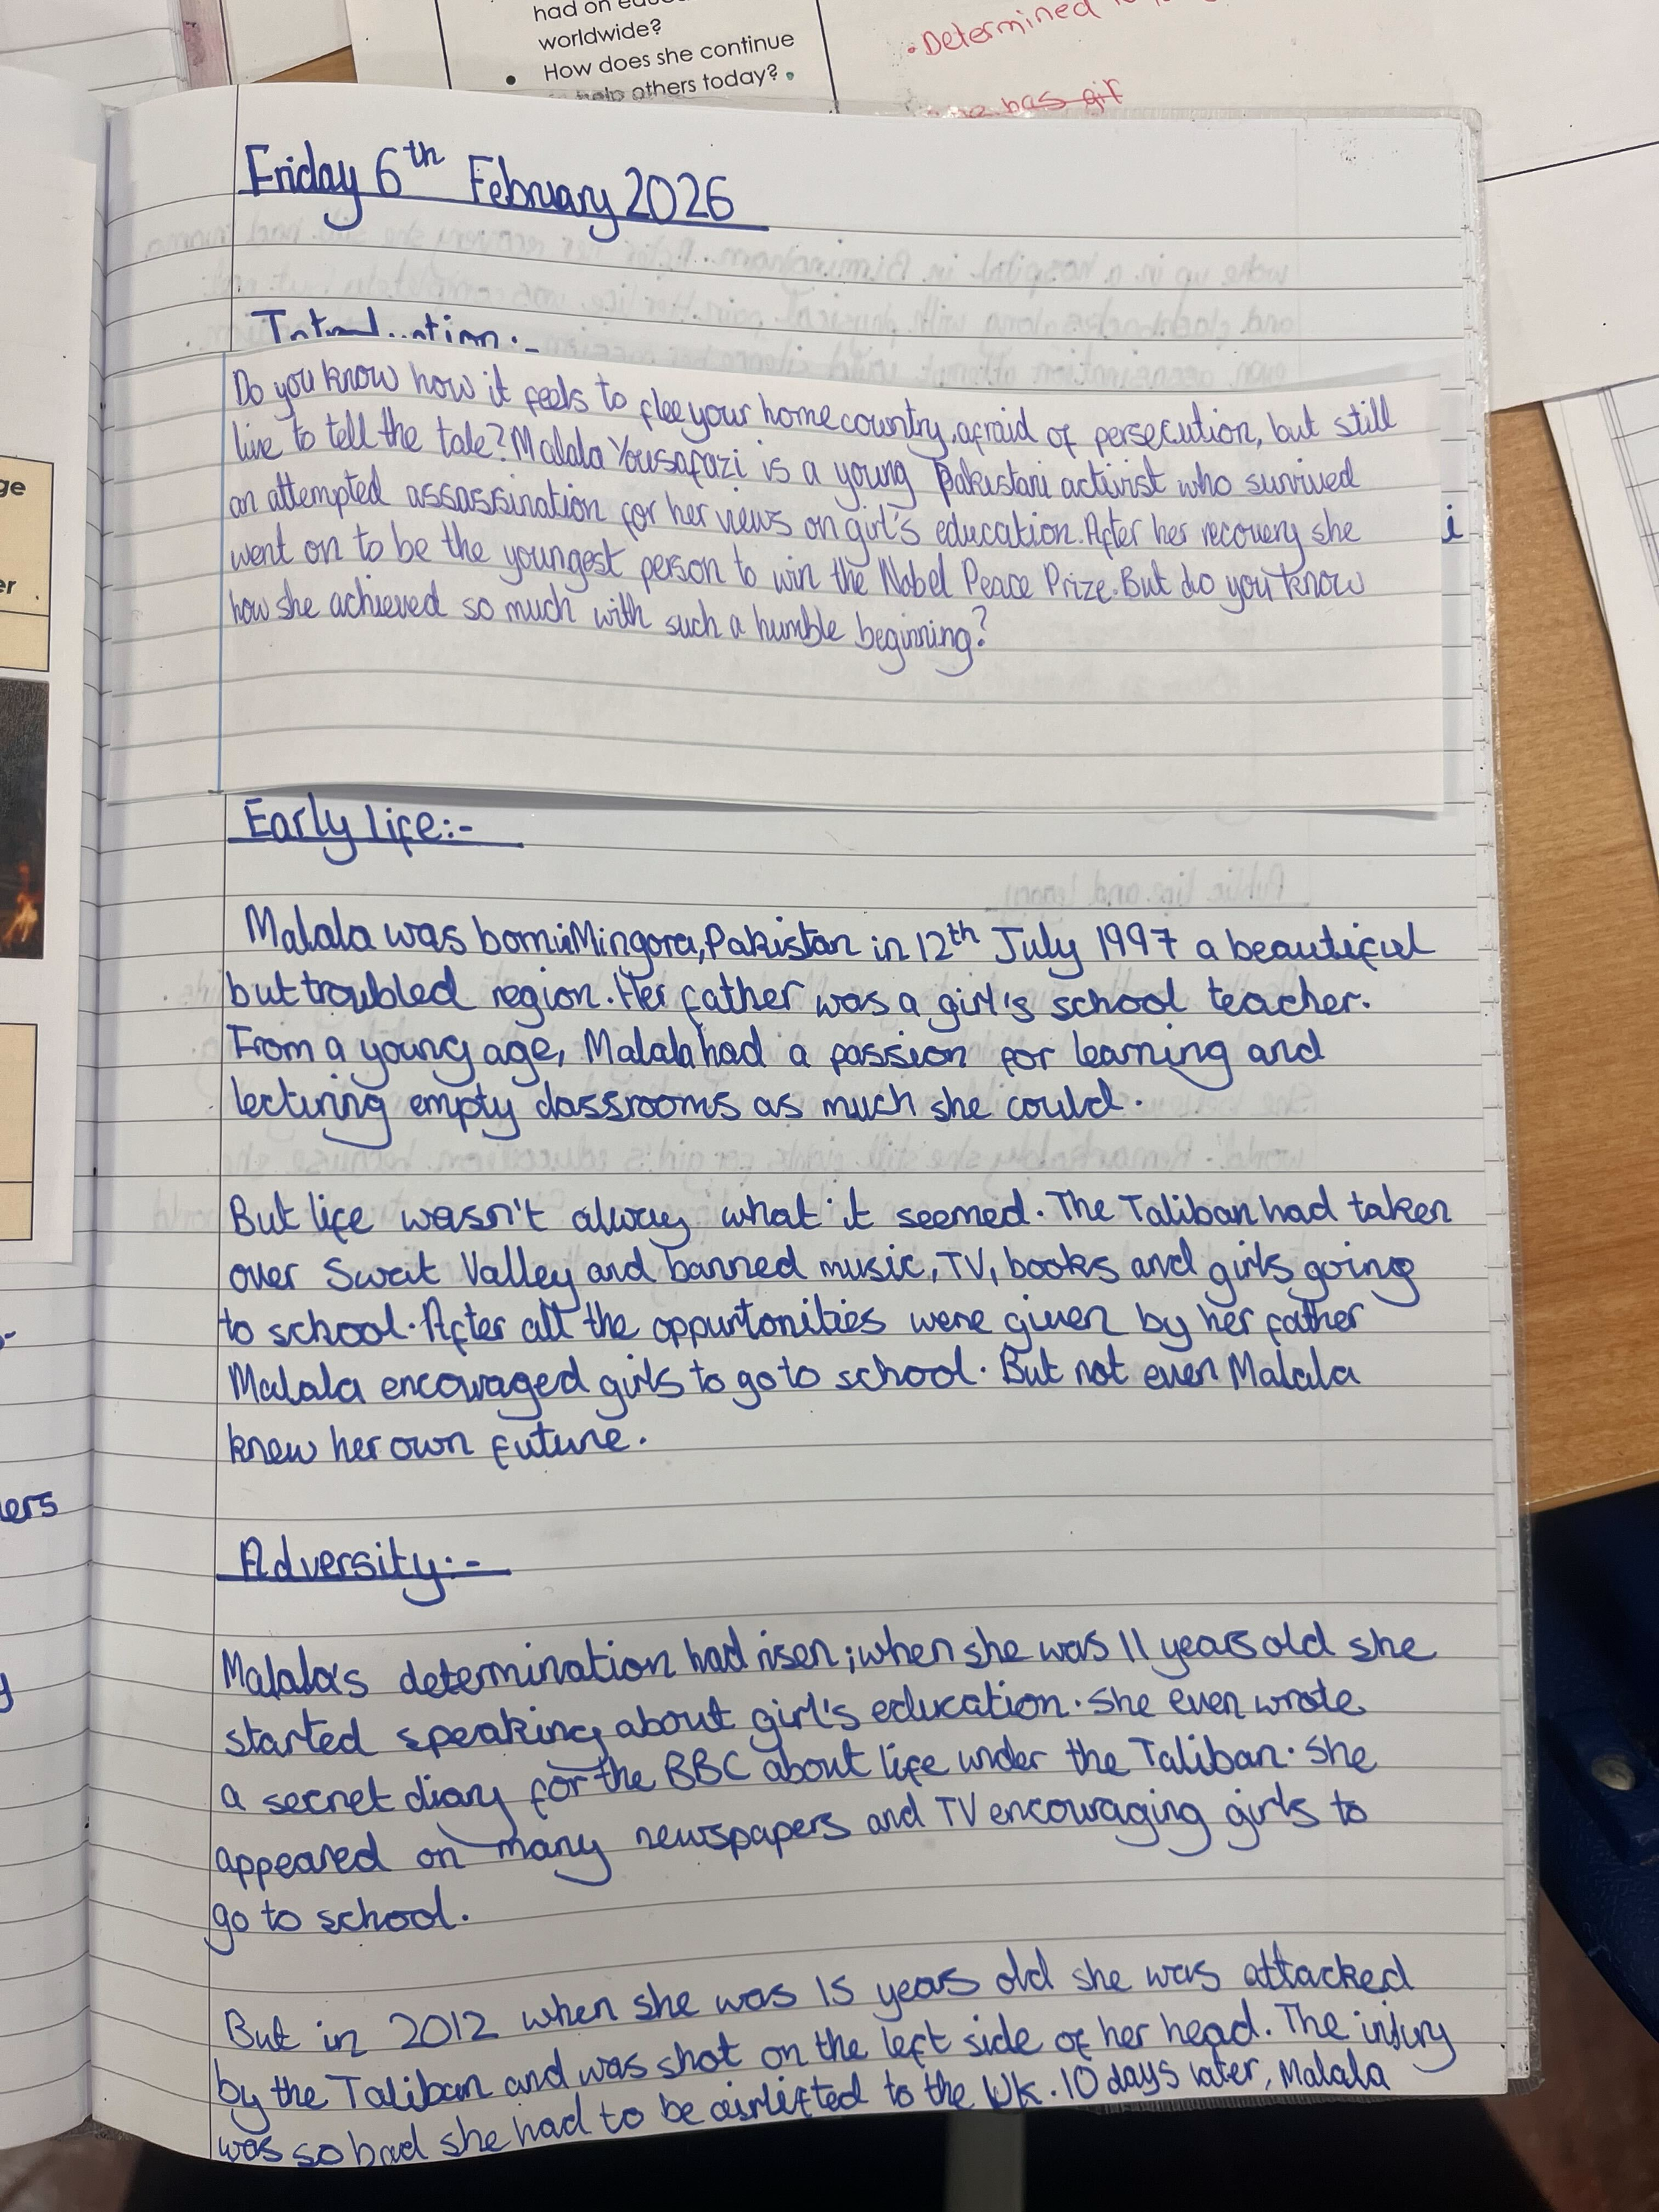 had on
worldwide?
• How does she continue
help others today?
• Determined
has gir
ge
er
ers
y
Friday 6th February 2026
Introduction:-
Do you know how it feels to flee your home country, afraid of persecution, but still
live to tell the tale? Malala Yousafazi is a young Pakistani activist who survived
an attempted assassination for her views on girl's education. After her recovery she
i
went on to be the youngest person to win the Nobel Peace Prize. But do you know
how she achieved so much with such a humble beginning?
Early life:-
Malala was born in Mingora, Pakistan in 12th July 1997 a beautiful
but troubled region. Her father was a girl's school teacher.
From a young age, Malala had a passion for learning and
lecturing empty classrooms as much she could.
But life wasn't alway what it seemed. The Taliban had taken
over Swat Valley and banned music, TV, books and girls going
to school. After all the oppurtonities were given by her father
Malala encouraged girls to go to school. But not even Malala
knew her own future.
Adversity:-
Malala's determination had risen; when she was 11 years old she
started speaking about girl's education. She even wrote
a secret diary for the BBC about life under the Taliban. She
appeared on many newspapers and TV encouraging girls to
go to school.
But in 2012 when she was 15 years old she was attacked
by the Taliban and was shot on the left side of her head. The injury
was so bad she had to be airlifted to the UK. 10 days later, Malala